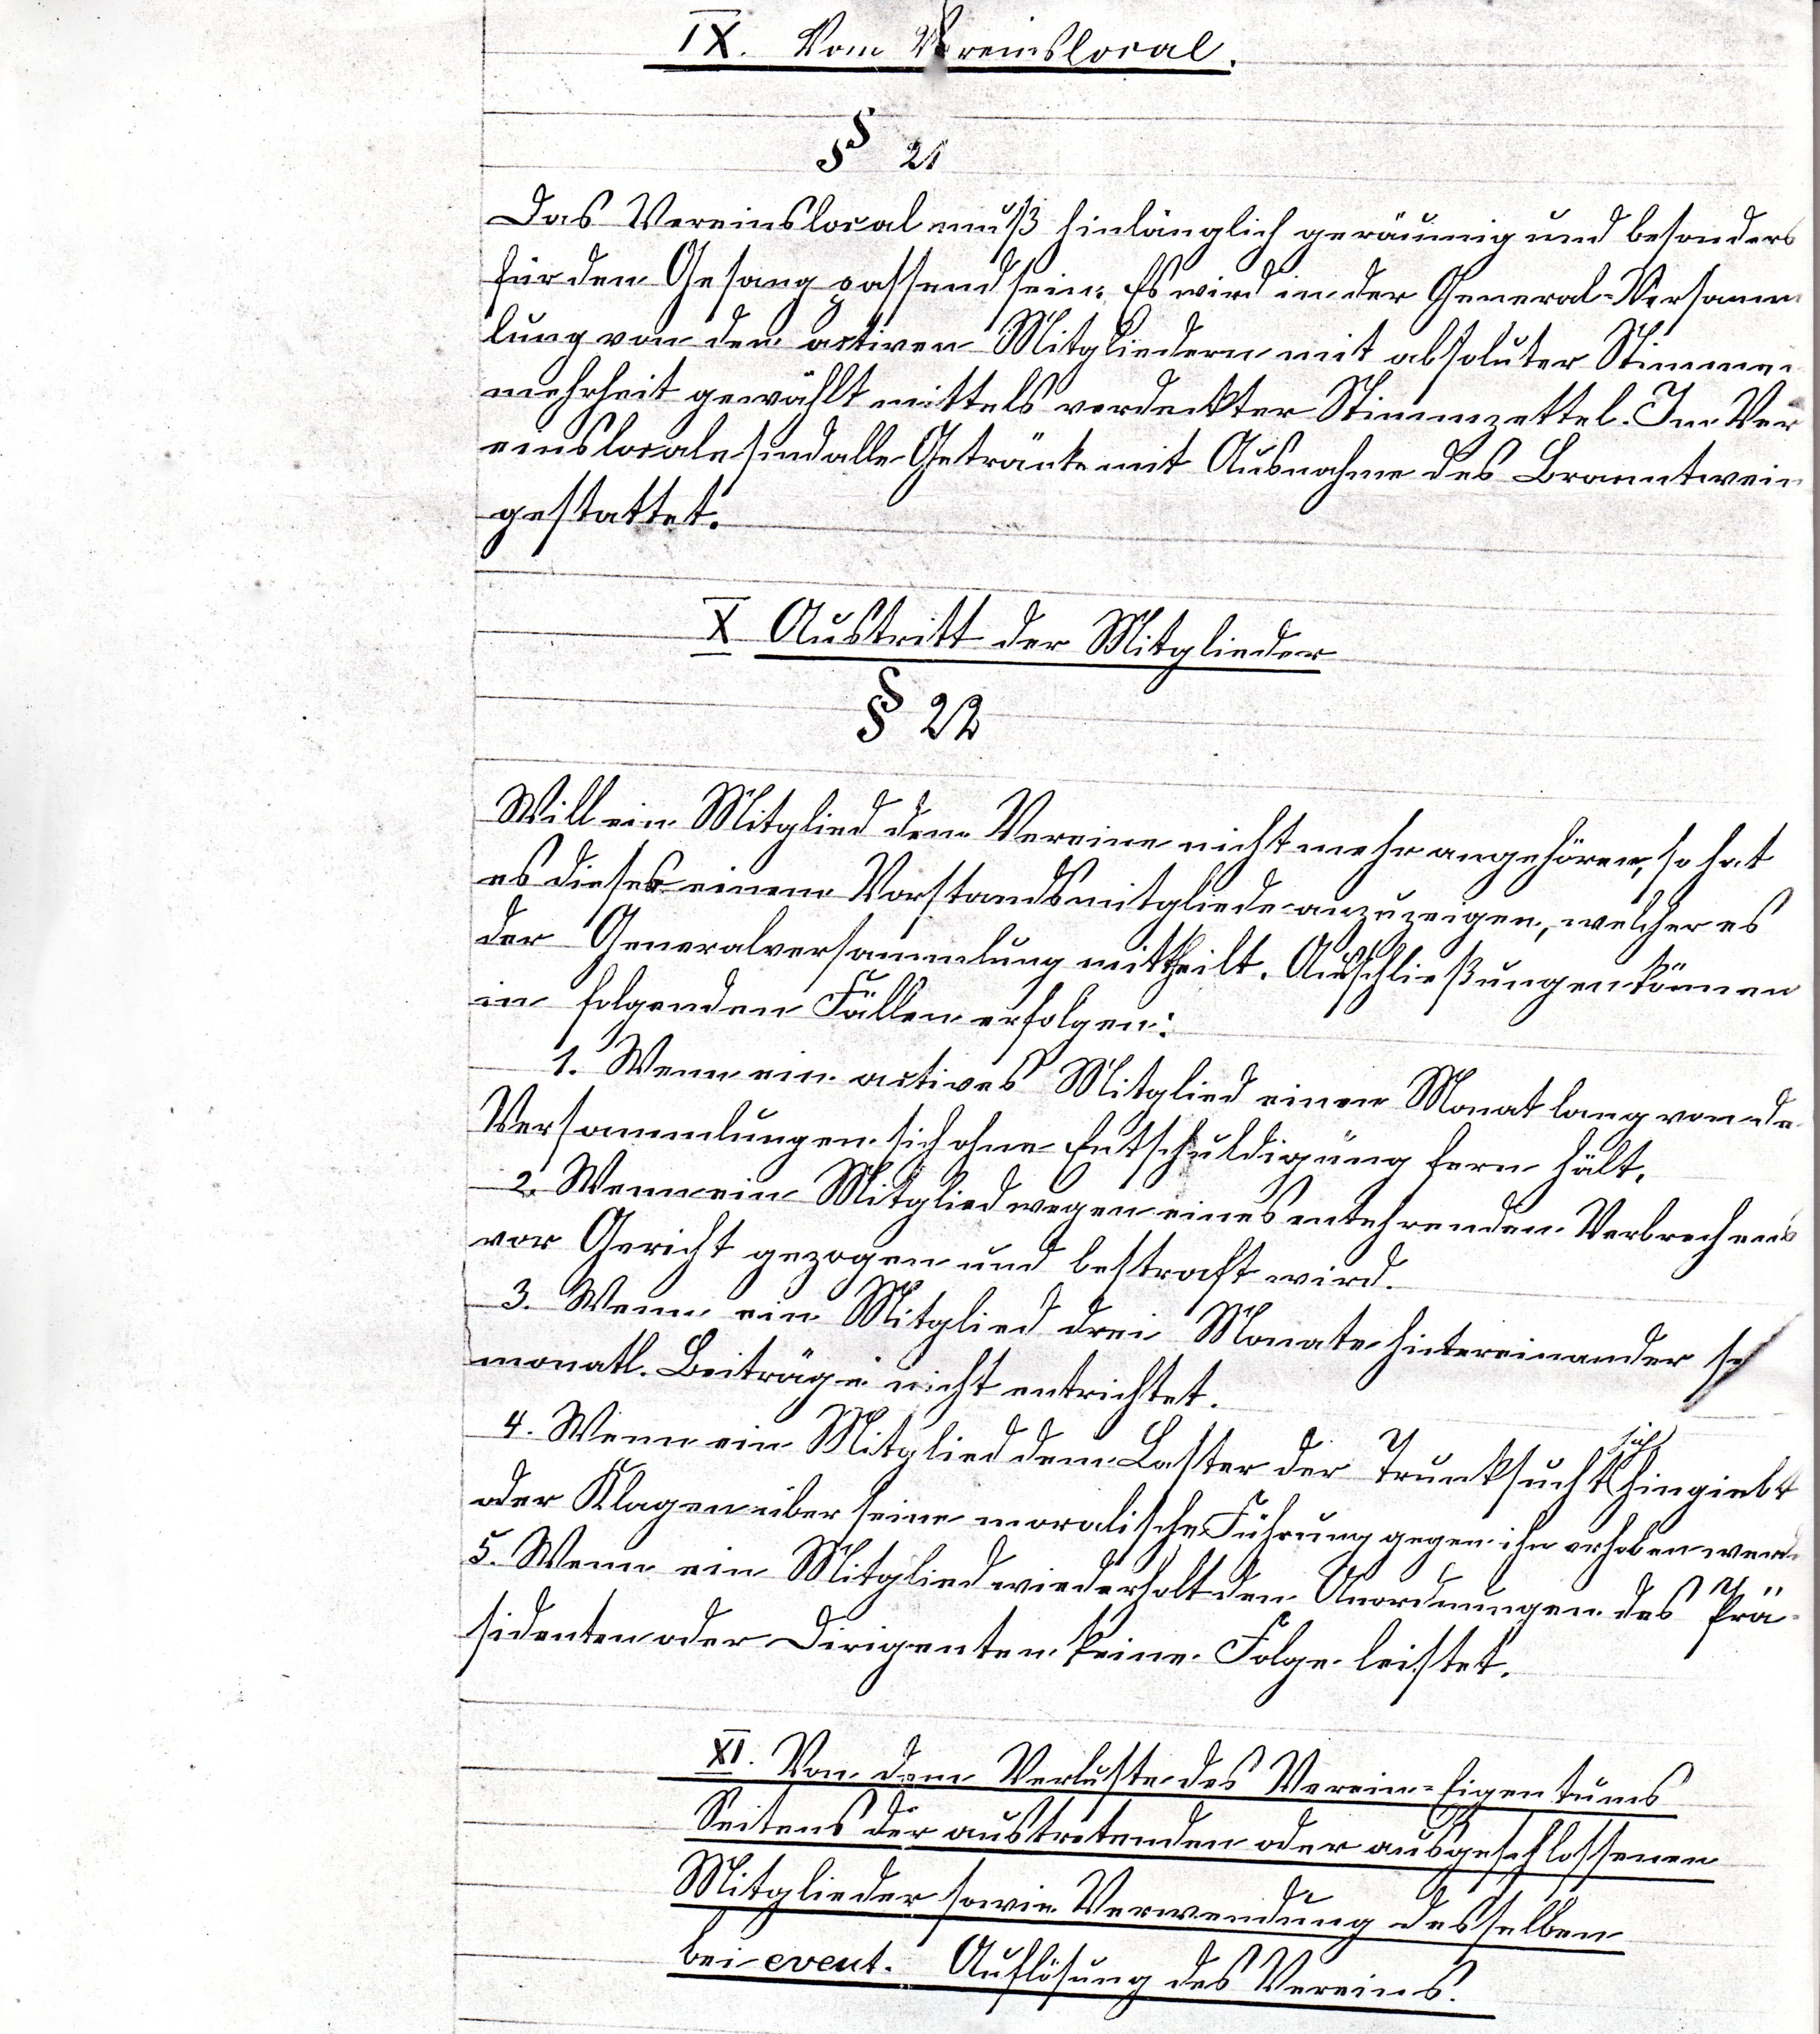 IX. Vom Vereinslocal.
§ 21
Das Vereinslocal muß hinlänglich geräumig und besonders
für den Gesang passend sein. Es wird in der General-Versamm
lung von den activen Mitgliedern mit absoluter Stimmen
mehrheit gewählt mittels verdeckter Stimmzettel. Im Ver
einslocale sind alle Getränke mit Ausnahme des Branntwein
gestattet.
X Austritt der Mitglieder
§ 22
Will ein Mitglied dem Vereine nicht mehr angehören, so hat
es dieses einem Vorstandsmitgliede anzuzeigen, welcher es
der Generalversammlung mittheilt. Ausschließungen können
in folgenden Fällen erfolgen:
1. Wenn ein actives Mitglied einen Monat lang von de
Versammlungen sich ohne Entschuldigung fern hält.
2. Wenn ein Mitglied wegen eines entehrenden Verbrechens
vor Gericht gezogen und bestraft wird.
3. Wenn ein Mitglied drei Monate hintereinander se
monatl. Beiträge nicht entrichtet.
4. Wenn ein Mitglied dem Laster der Trunksucht sich hingiebt
oder Klagen über seine moralische Führung gegen ihn erhoben werd
5. Wenn ein Mitglied wiederholt den Anordnungen des Prä-
sidenten oder Dirigenten keine Folge leistet.
XI. Von dem Verluste des Verein-Eigentums
Seitens der austretenden oder ausgeschlossenen
Mitglieder sowie Verwendung desselben
bei event. Auflösung des Vereins.